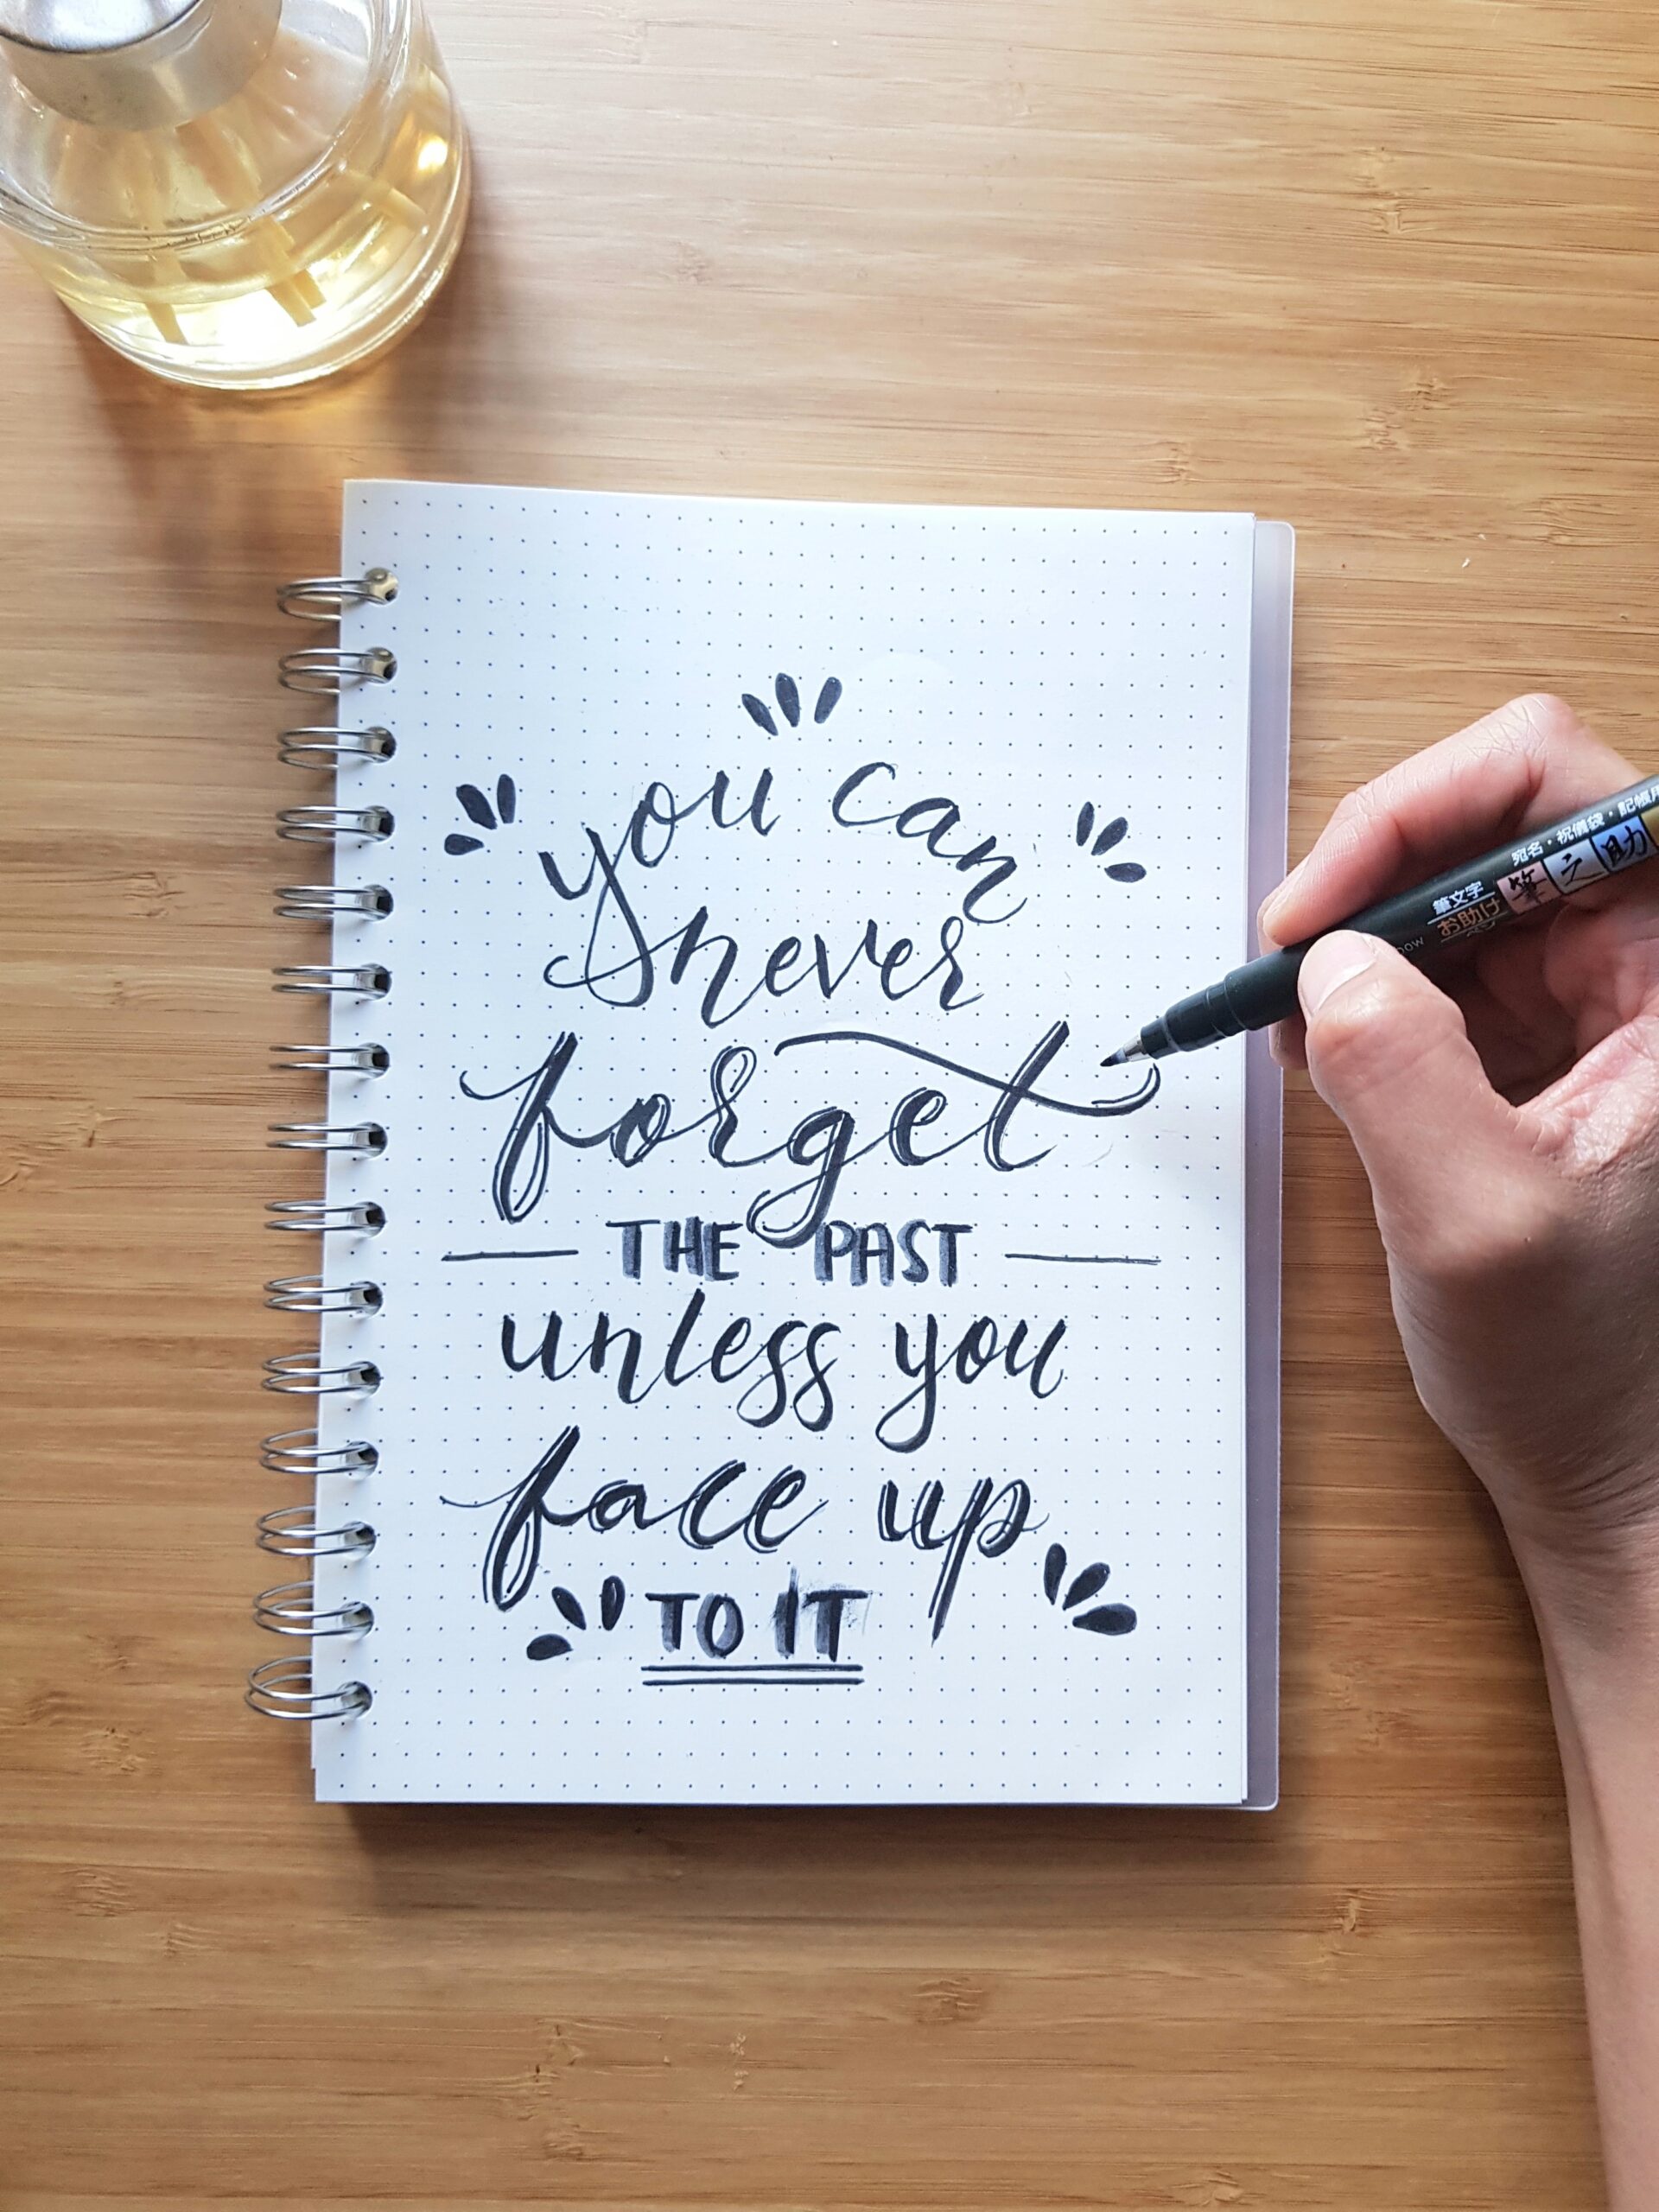 you can
never
forget
THE PAST
unless you
face up
TO IT
宛名・祝儀袋・記帳用
筆之助
筆文字
お助け
bow